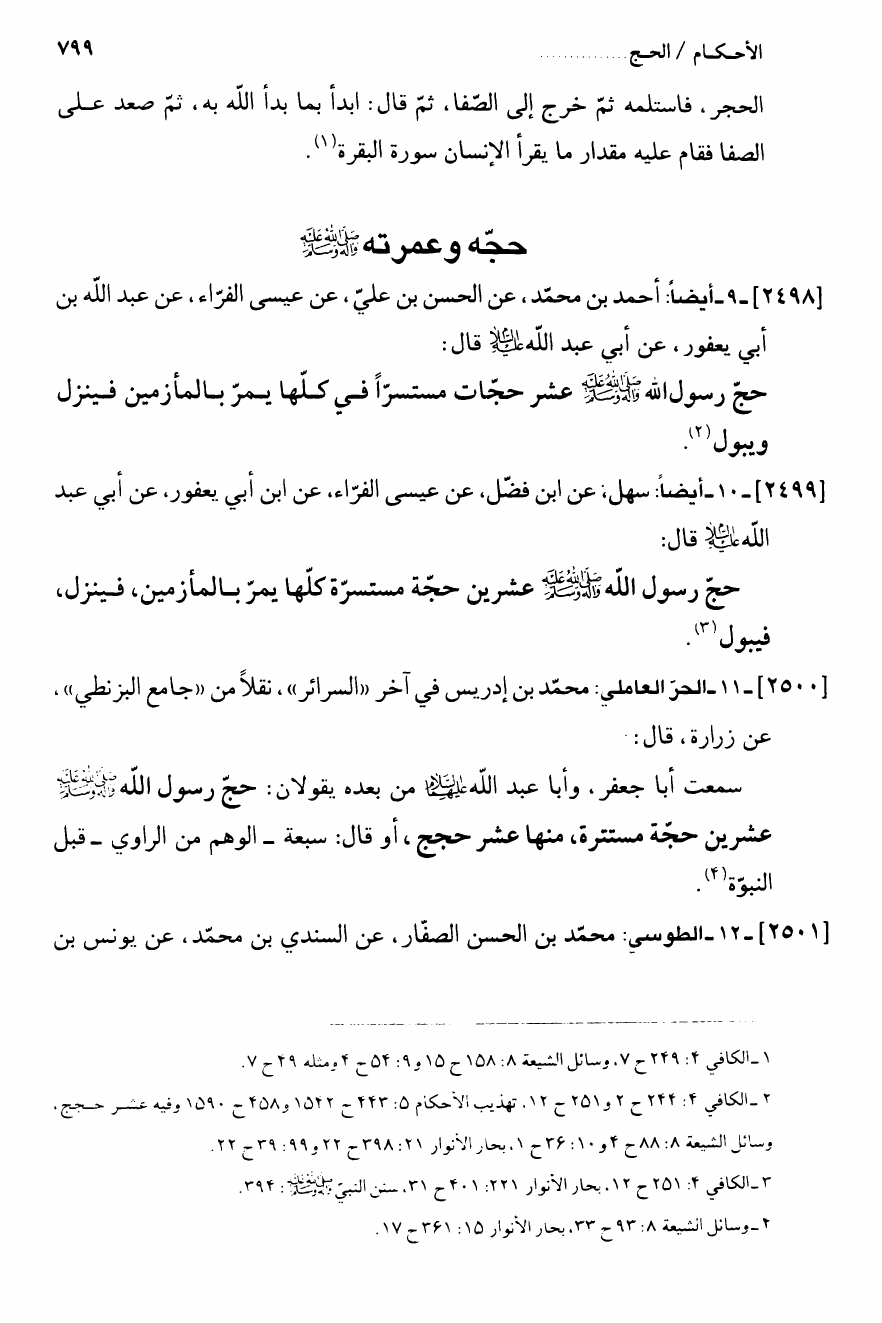 الأحـكـام / الحـج .............. ٧٩٩
الحجر، فاستلمه ثمّ خرج إلى الصّفا، ثمّ قال: ابدأ بما بدأ اللّه به، ثمّ صعد عـلـى
الصفا فقام عليه مقدار ما يقرأ الإنسان سورة البقرة(١).
حجّه وعمرته ﷺ
[٢٤٩٨] ـ ٩ ـ أيضاً: أحمد بن محمّد، عن الحسن بن عليّ، عن عيسى الفرّاء، عن عبد اللّه بن
أبي يعفور، عن أبي عبد اللّه عليه السلام قال:
حجّ رسول الله ﷺ عشر حجّات مستسرّاً فـي كـلّها يـمرّ بـالمأزمين فـينزل
ويبول(٢).
[٢٤٩٩] ـ ١٠ ـ أيضاً: سهل، عن ابن فضّل، عن عيسى الفرّاء، عن ابن أبي يعفور، عن أبي عبد
اللّه عليه السلام قال:
حجّ رسول اللّه ﷺ عشرين حجّة مستسرّة كلّها يمرّ بـالمأزمين، فـينزل،
فيبول(٣).
[٢٥٠٠] ـ ١١ ـ الحرّ العاملي: محمّد بن إدريس في آخر «السرائر»، نقلاً من «جامع البزنطي»،
عن زرارة، قال:
سمعت أبا جعفر، وأبا عبد اللّه عليهما السلام من بعده يقولان: حجّ رسول اللّه ﷺ
عشرين حجّة مستترة، منها عشر حجج، أو قال: سبعة ـ الوهم من الراوي ـ قبل
النبوّة(۴).
[٢٥٠١] ـ ١٢ ـ الطوسي: محمّد بن الحسن الصفّار، عن السندي بن محمّد، عن يونس بن
١ ـ الكافي ۴: ٢۴٩ ح ٧، وسائل الشيعة ٨: ١٥٨ ح ١٥ و ٩: ٥۴ ح ۴ ومثله ۴٩ ح ٧.
٢ ـ الكافي ۴: ٢۴۴ ح ٢ و ٢٥١ ح ١٢، تهذيب الأحكام ٥: ۴۴٣ ح ١٥۴٢ و ۴٥٨ ح ١٥٩٠ وفيه عشـر حـجج،
وسائل الشيعة ٨: ٨٨ ح ۴ و ١٠: ٣۶ ح ١، بحار الأنوار ٢١: ٣٩٨ ح ٢٢ و ٩٩: ٣٩ ح ٢٢.
٣ ـ الكافي ۴: ٢٥١ ح ١٢، بحار الأنوار ٢٢١: ۴٠١ ح ٣١، سنن النبيّ ﷺ: ٣٩۴.
۴ ـ وسائل الشيعة ٨: ٩٣ ح ٣٣، بحار الأنوار ١٥: ٣۶١ ح ١٧.